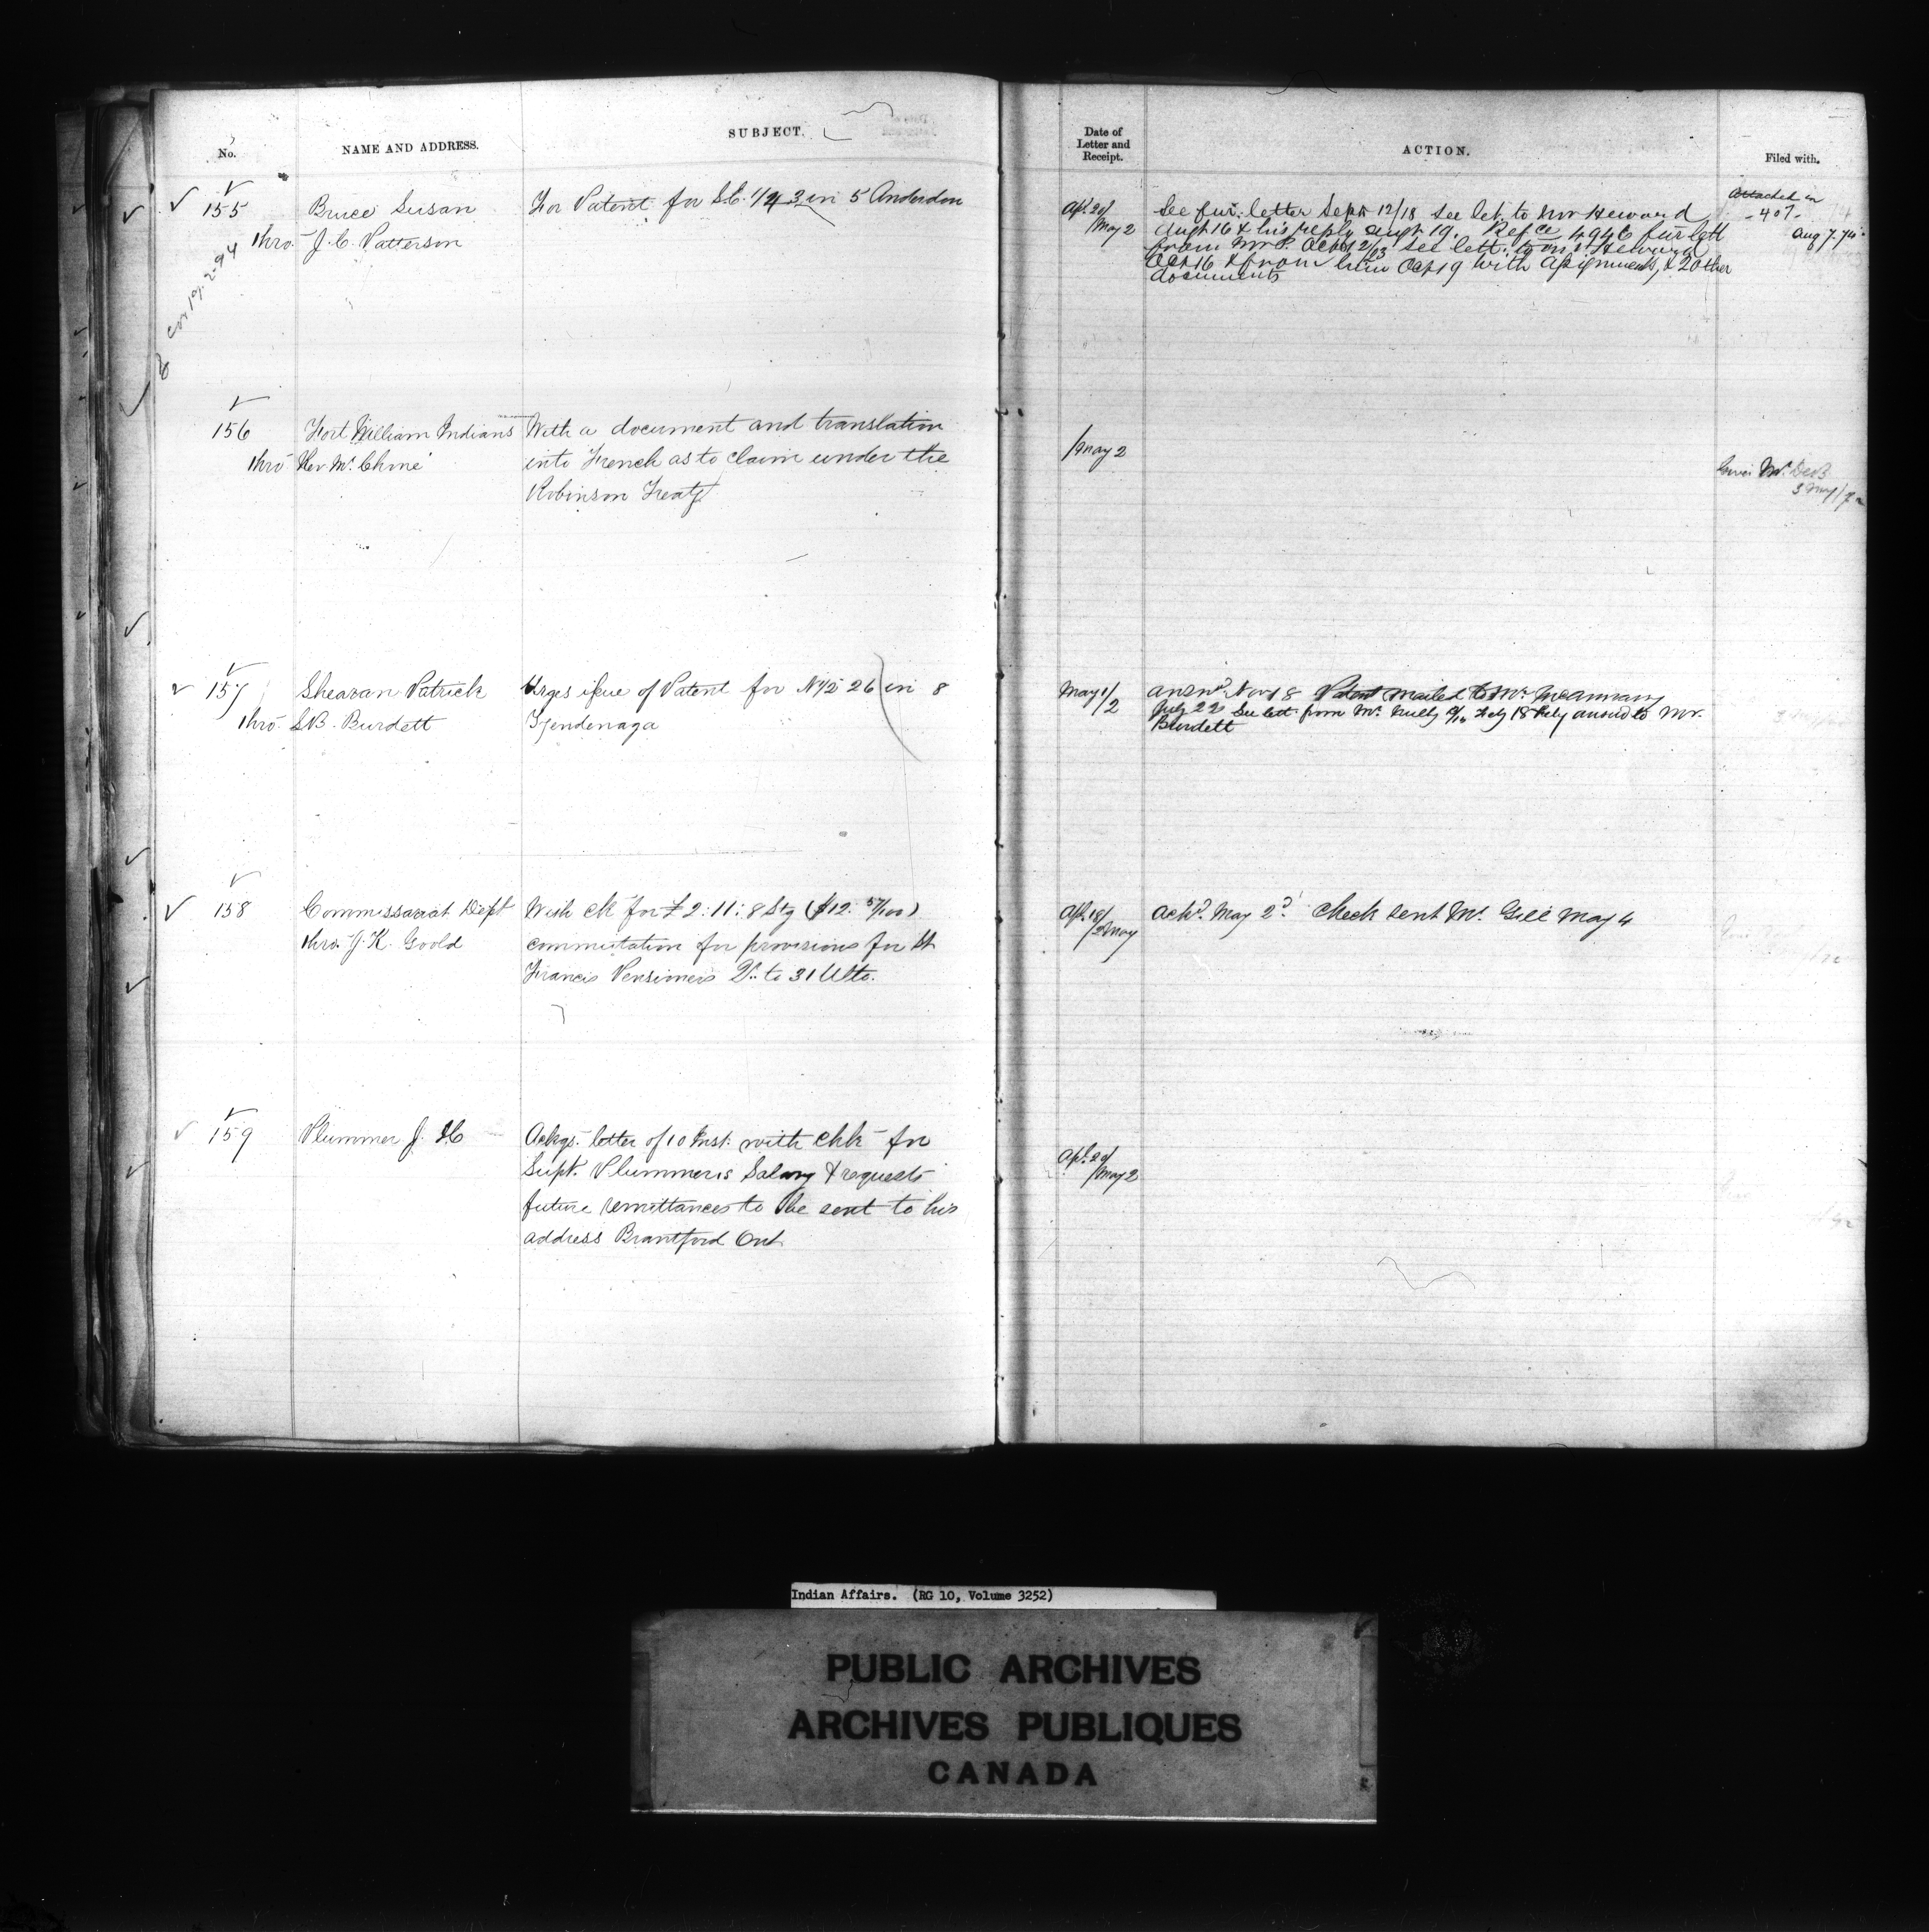 No.
NAME AND ADDRESS.
SUBJECT.
Date of
Letter and
Receipt.
ACTION.
Filed with.
155
Bruce Susan
thro. J. C. Patterson
For Patent for S.E. 1/4 3 in 5 Anderdon
Apl. 20/
/May 2
See fur. letter Sept 12/18 see let. to Mr Heward
Augt 16 & his reply Augt 19. Refce 4946 fur lett
from Mr P. Oct 12/13 see lett. to Mr Heward
Oct 16 & from him Oct 19 with Assignments, & 2 other
documents
Attached in
-407-
Aug 7.74
156
Fort William Indians
thro Rev Mr. Choné
With a document and translation
into French as to claim under the
Robinson Treaty
/May 2
3 May/72
157
Shearan Patrick
thro. S.B. Burdett
Urges issue of Patent for N 1/2 26 in 8
Tyendenaga
May 1/
/2
Answd. Nov 18 Patent mailed to Mr McAnnany
July 22 See lett. from Mr. 18 July answd to Mr.
Burdett
158
Commissariat Dept
thro. J. K. Goold
With ck for £2:11:8 Stg ($12. 57/100)
commutation for provisions for St
Francis Pensioners Dr. to 31 Ulto.
Apl. 18/
/2 May
Ackd. May 2d. Check sent Mr. Gill May 4
159
Plummer J. H.
Ackgs. letter of 10 Inst. with chk for
Supt. Plummer's Salary & requests
future remittances to be sent to his
address Brantford Ont
Apl. 29/
/May 2
Indian Affairs. (RG 10, Volume 3252)
PUBLIC ARCHIVES
ARCHIVES PUBLIQUES
CANADA